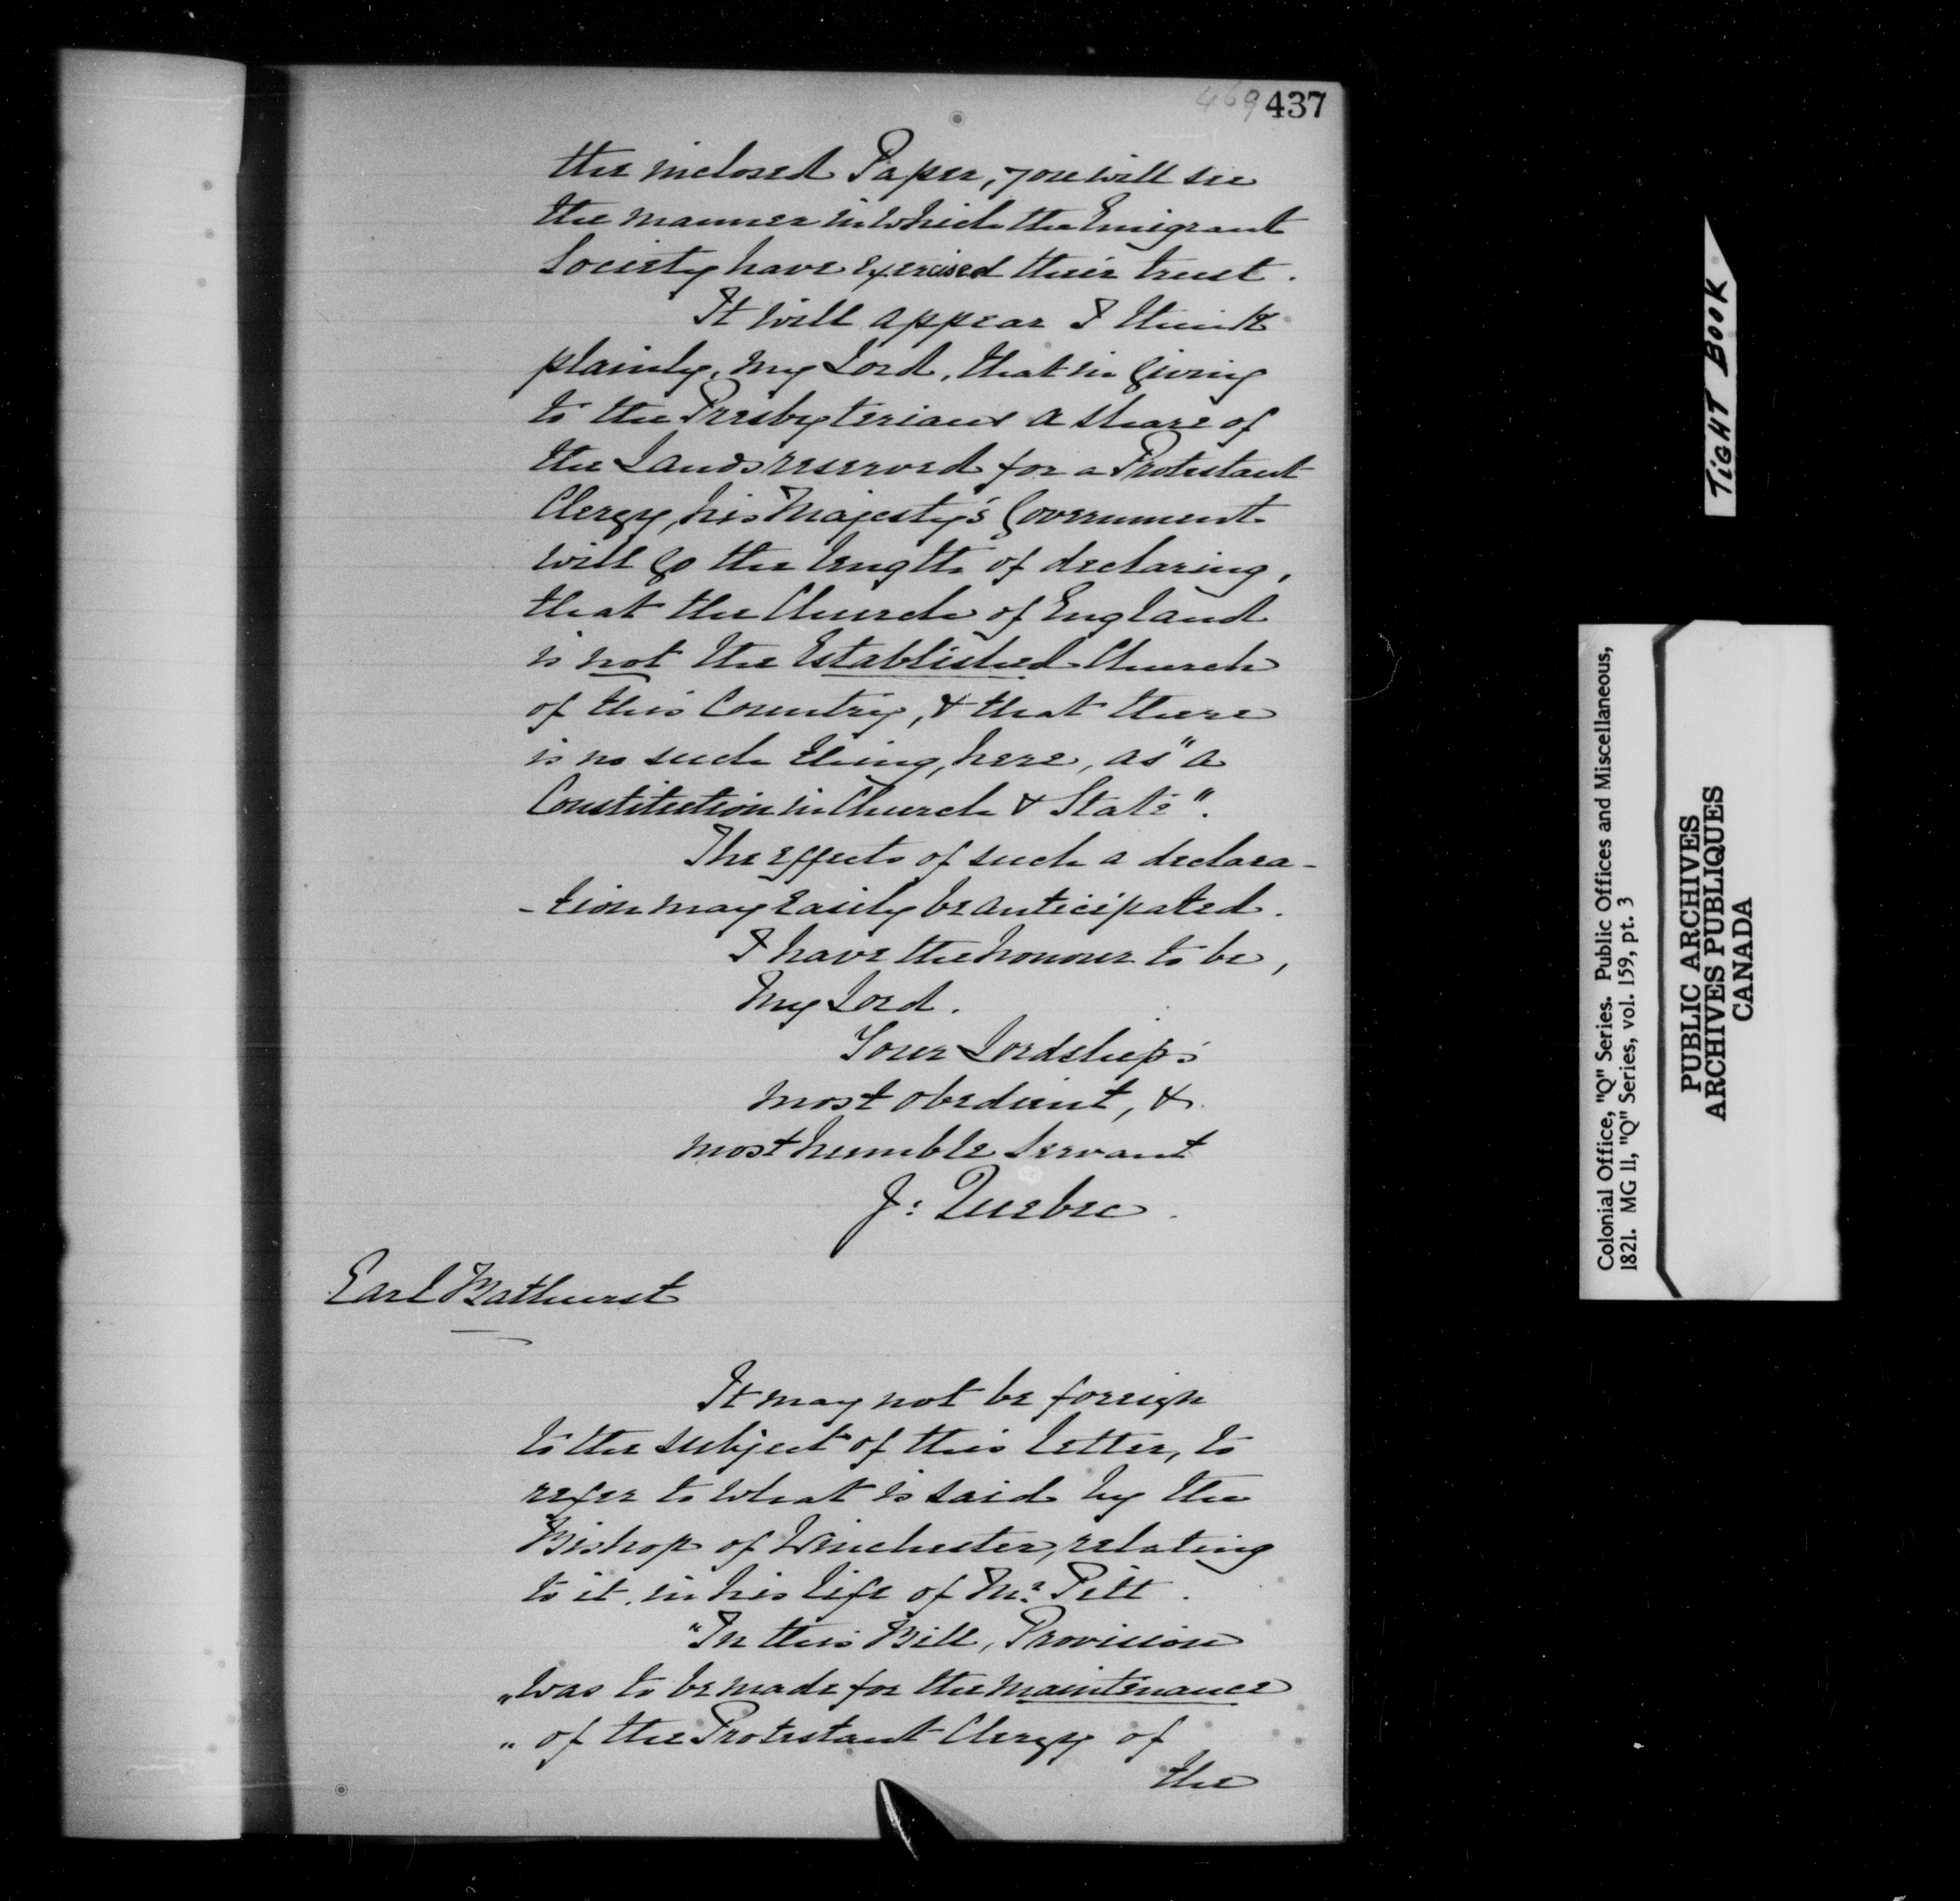 469 437
the inclosed Paper, you will see
the manner in which the Emigrant
Society have exercised their trust.
It will appear I think
plainly, my Lord, that in giving
to the Presbyterians a share of
the Lands reserved for a Protestant
Clergy, his Majesty's Government
will go the length of declaring,
that the Church of England
is not the Established Church
of this Country, & that there
is no such thing, here, as "a
Constitution in Church & State".
The effects of such a declara-
-tion may easily be anticipated.
I have the honour to be,
My Lord.
Your Lordship's
most obedient, &
most humble servant
J: Quebec.
Earl Bathurst
It may not be foreign
to the subject of this letter, to
refer to what is said by the
Bishop of Winchester, relating
to it, in his life of Mr. Pitt.
"In this Bill, Provision
"was to be made for the maintenance
"of the Protestant Clergy of
the
TIGHT BOOK
Colonial Office, "Q" Series. Public Offices and Miscellaneous,
1821. MG 11, "Q" Series, vol. 159, pt. 3
PUBLIC ARCHIVES
ARCHIVES PUBLIQUES
CANADA